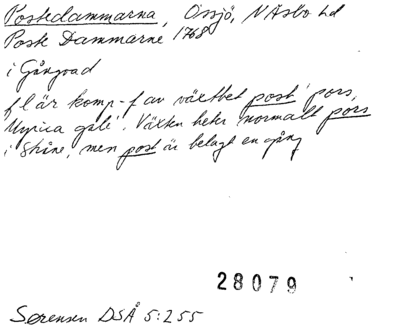 Postedammarna, Össjö, N Åsbo hd
Posk Dammarne 1768
i Gångvad
fl är komp-f av växtbet post 'pors,
Myrica gale'. Växten heter normalt pors
i Skåne, men post är belagt en gång
28079
Sørensen DSÅ 5:255